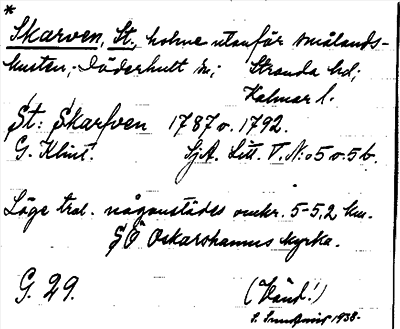 *
Skarven, St., holme utanför smålands-
kusten; Döderhult sn; Stranda hd;
Kalmar l.
St: Skarfven 1787 o. 1792.
G. Klint. SjA. Litt. V. N:o 5 o. 5 b.
Läge trol. någonstädes omkr. 5-5,2 km.
SÖ Oskarshamns kyrka.
G. 29. (Vänd!)
1938.